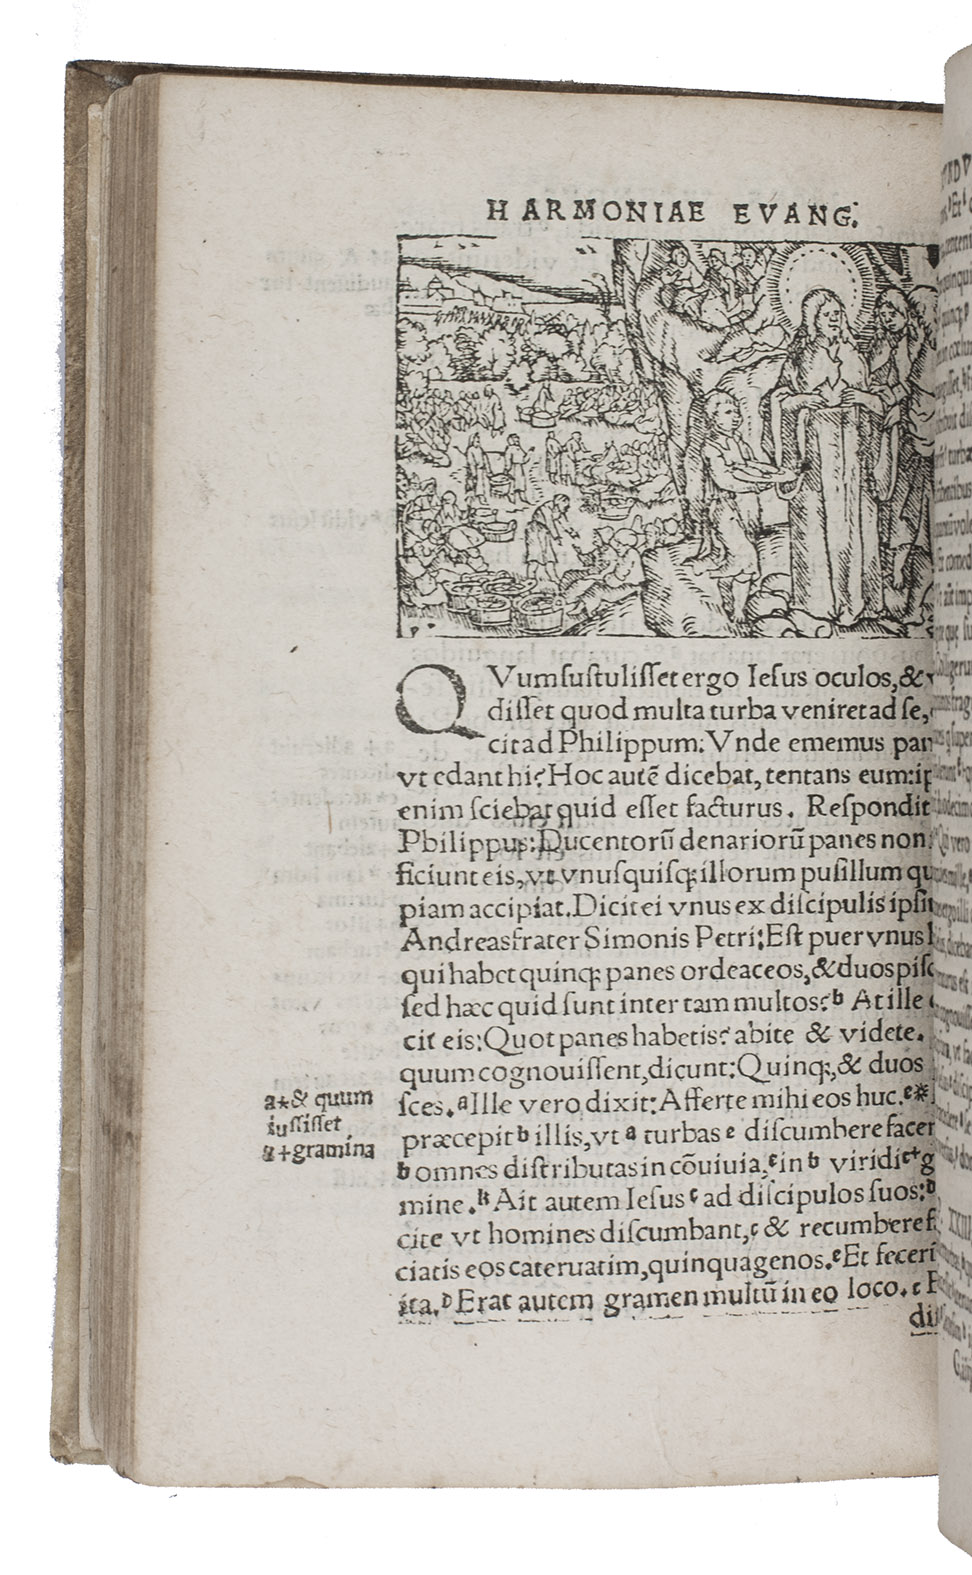 HARMONIAE EVANG:
QVum sustulisset ergo Iesus oculos, &
disset quod multa turba veniret ad se,
cit ad Philippum: Vnde ememus pan
vt edant hi? Hoc autē dicebat, tentans eum: ip
enim sciebat quid esset facturus. Respondit
Philippus: Ducentorū denariorū panes non
ficiunt eis, vt vnusquisq; illorum pusillum qu
piam accipiat. Dicit ei vnus ex discipulis ipsi
Andreas frater Simonis Petri: Est puer vnus
qui habet quinq; panes ordeaceos, & duos pisc
sed hæc quid sunt inter tam multos? b At ille
cit eis: Quot panes habetis? abite & videte.
quum cognouissent, dicunt: Quinq;, & duos
sces. a Ille vero dixit: Afferte mihi eos huc. c*
præcepit b illis, vt a turbas e discumbere facer
b omnes distributas in cōuiuia, c in b viridi c+ g
mine. k Ait autem Iesus c ad discipulos suos: D
cite vt homines discumbant, c & recumbere f
ciatis eos cateruatim, quinquagenos. e Et fecer
ita. D Erat autem gramen multū in eo loco. c
di
a* & quum
iussisset
a+ gramina